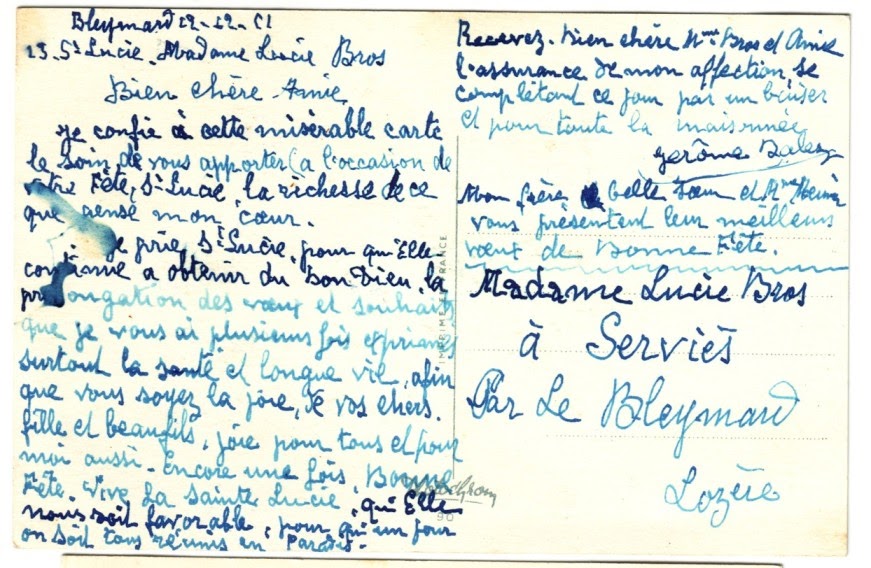 Bleymard 12-12-51
13 St Lucie. Madame Lucie Bros
Bien chère Amie
Je confie à cette misérable carte
le soin de vous apporter (a l'occasion de
votre Fête, St Lucie, la richesse de ce
que pense mon cœur.
Je prie, St Lucie, pour qu'Elle
continue a obtenir du bon Dieu, la
prolongation des vœux et souhaits
que je vous ai plusieurs fois exprimés
surtout la santé et longue vie, afin
que vous soyez la joie, de vos chers.
fille et beaufils, joie pour tous et pour
moi aussi. Encore une fois, Bonne
Fête. Vive La Sainte Lucie, qu'Elle
nous soit favorable, pour qu'un jour
on soit tous réunis en Paradis.
Recevez. bien chère Mme Bros et Amie
l'assurance de mon affection se
complétant ce jour par un baiser
et pour toute la maisonnée
Jerôme
Mon frère belle sœur et Mme
vous présentent leur meilleurs
vœux de Bonne Fête.
Madame Lucie Bros
à Serviès
Par Le Bleymard
Lozère
IMPRIMÉ FRANCE
90